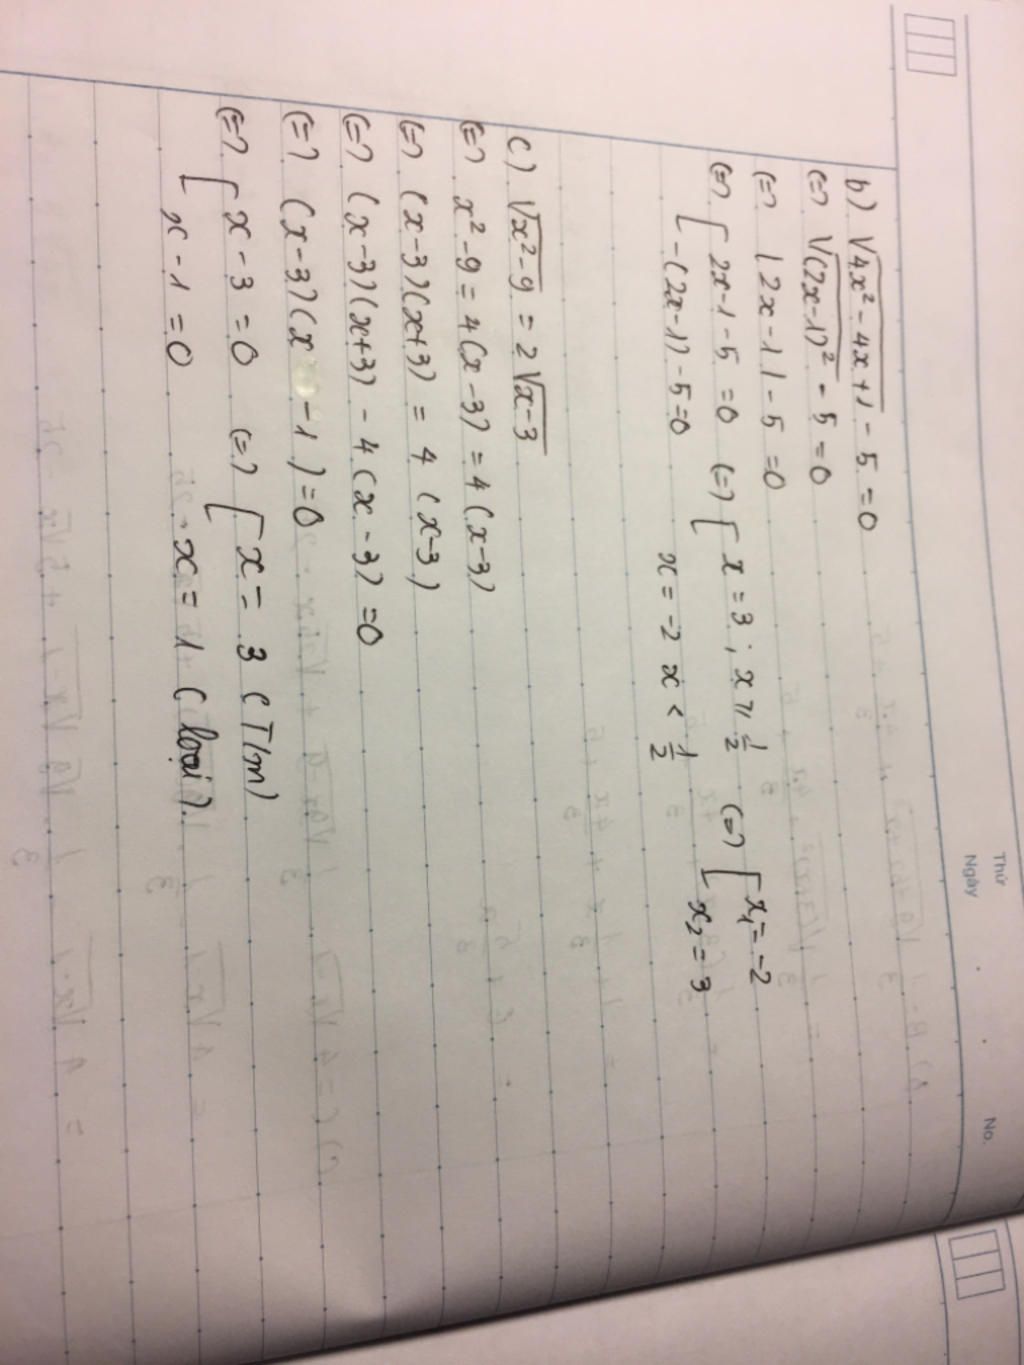 Thứ
Ngày
No.
b) √(4x² - 4x + 1) - 5 = 0
(=) √((2x-1)²) - 5 = 0
(=) |2x-1| - 5 = 0
(=) [ 2x-1-5 = 0 (=) [ x = 3 ; x ≥ 1/2 (=) [ x₁ = -2
-(2x-1) - 5 = 0 x = -2 x < 1/2 x₂ = 3
c) √(x² - 9) = 2√(x-3)
(=) x² - 9 = 4(x-3) = 4(x-3)
(=) (x-3)(x+3) = 4(x-3)
(=) (x-3)(x+3) - 4(x-3) = 0
(=) (x-3)(x - 1) = 0
(=) [ x - 3 = 0 (=) [ x = 3 (T/m)
x - 1 = 0 x = 1 (loại).